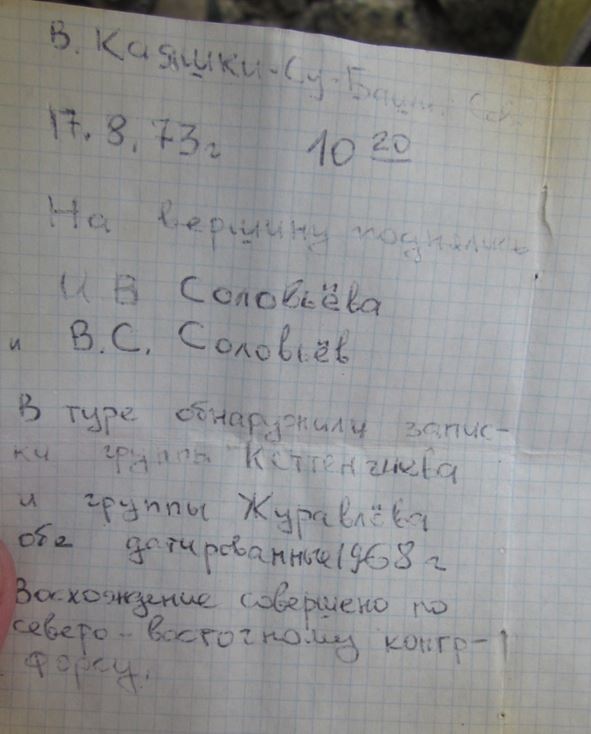 В. Каяшки-Су-Баши Сев.
17.8.73 г 10 20
На вершину поднялись
И В Соловьёва
и В.С. Соловьёв
В туре обнаружили запис-
ки группы
и группы Журавлёва
обе датированные 1968 г
Восхождение совершено по
северо-восточному контр-
форсу.